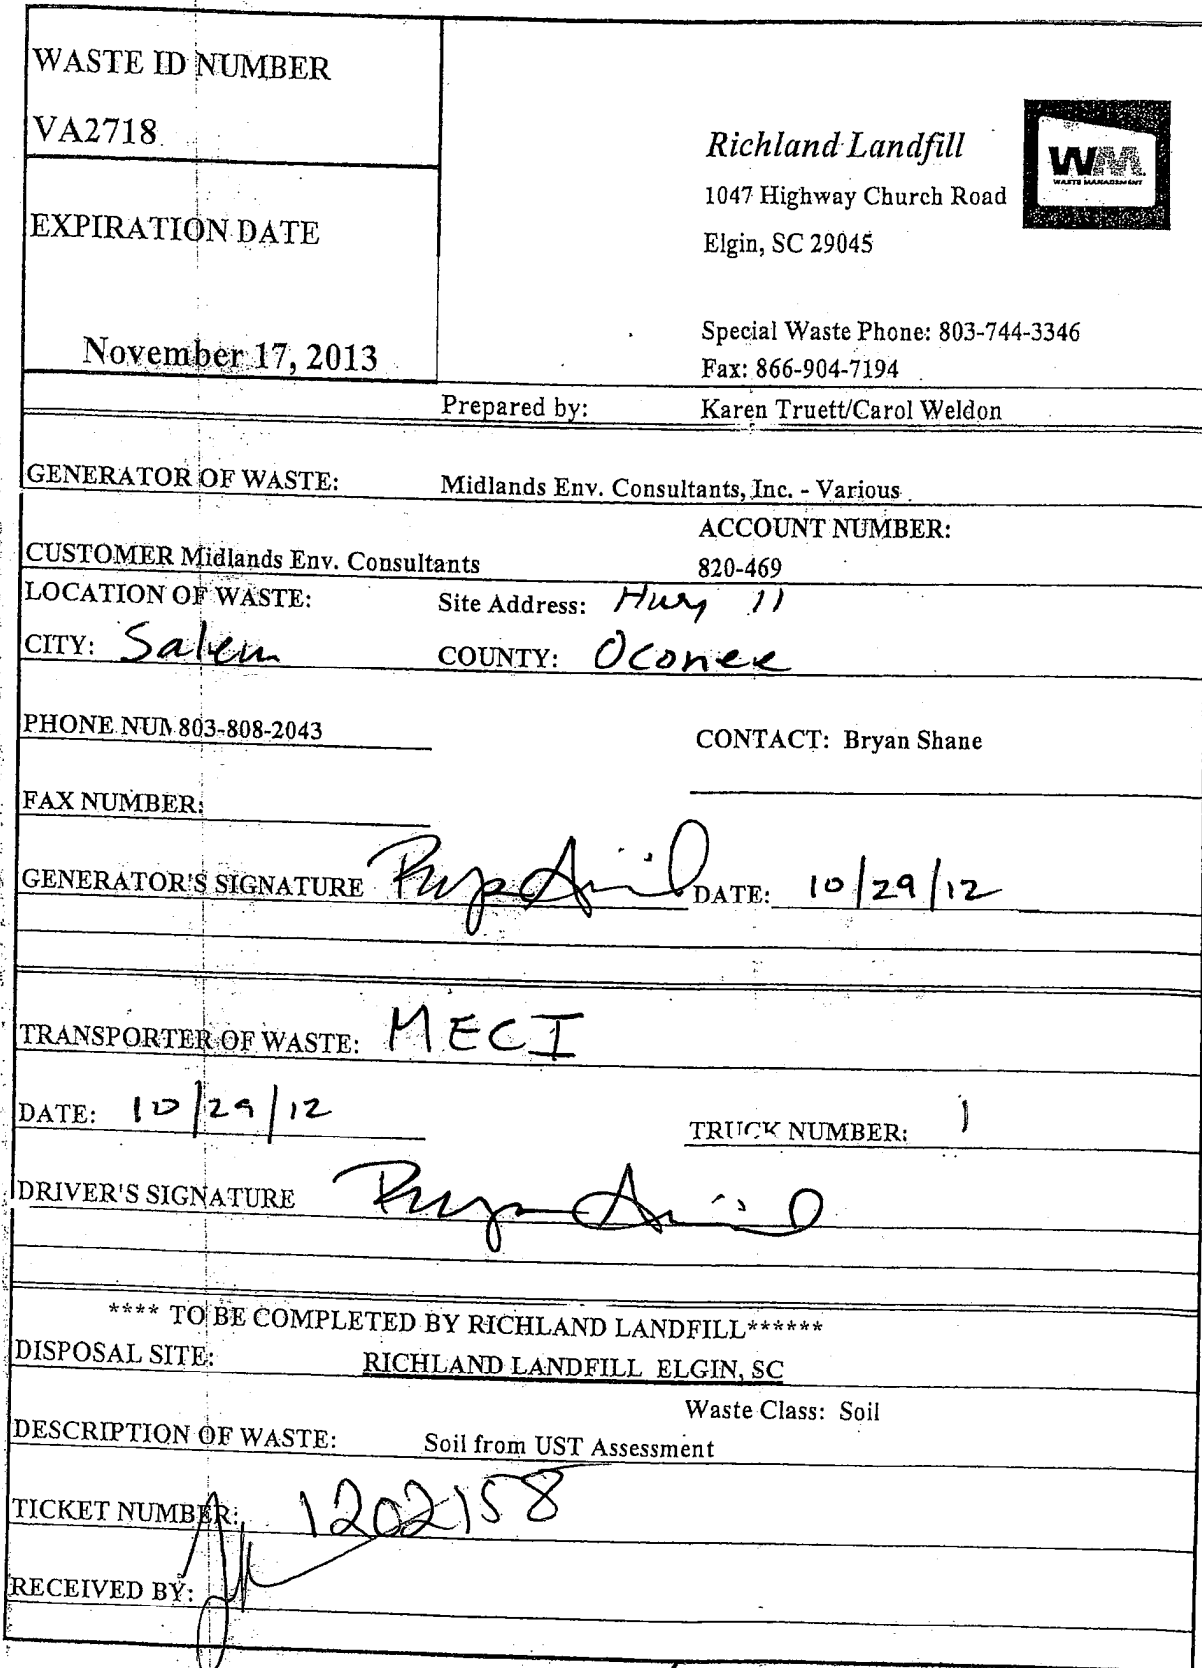 WASTE ID NUMBER
VA2718
EXPIRATION DATE
November 17, 2013
Richland Landfill
1047 Highway Church Road
Elgin, SC 29045
WM
WASTE MANAGEMENT
Special Waste Phone: 803-744-3346
Fax: 866-904-7194
Prepared by: Karen Truett/Carol Weldon
GENERATOR OF WASTE: Midlands Env. Consultants, Inc. - Various
ACCOUNT NUMBER:
CUSTOMER Midlands Env. Consultants 820-469
LOCATION OF WASTE: Site Address: Hwy 11
CITY: Salem COUNTY: Oconee
PHONE NUM 803-808-2043 CONTACT: Bryan Shane
FAX NUMBER:
GENERATOR'S SIGNATURE DATE: 10/29/12
TRANSPORTER OF WASTE: MECI
DATE: 10/29/12 TRUCK NUMBER: 1
DRIVER'S SIGNATURE
**** TO BE COMPLETED BY RICHLAND LANDFILL******
DISPOSAL SITE: RICHLAND LANDFILL ELGIN, SC
Waste Class: Soil
DESCRIPTION OF WASTE: Soil from UST Assessment
TICKET NUMBER: 1202158
RECEIVED BY: